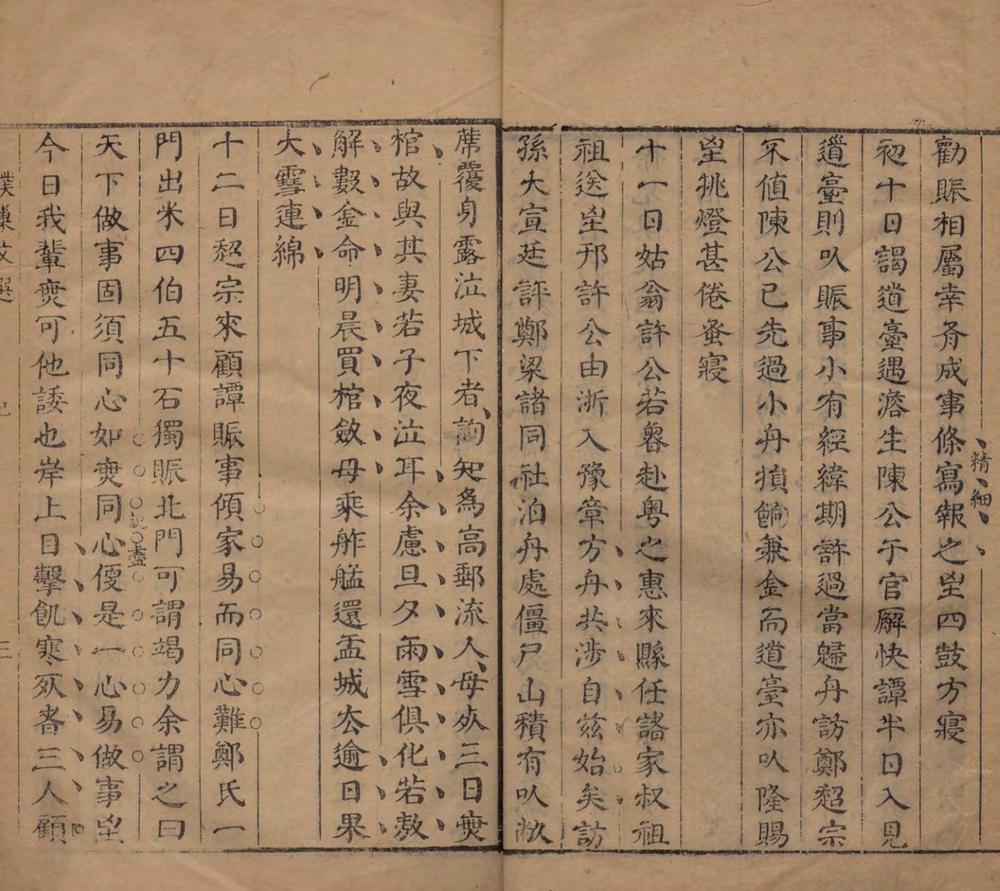 勸賑相屬幸胥成事條寫報之坒四鼓方寢
精細
初十日謁道臺遇滵生陳公于官廨快譚半日入見
道臺則㕥賑事小有經緯期許過當歸舟訪鄭超宗
不值陳公已先過小舟犒餉兼金而道臺亦㕥隆賜
坒挑燈甚倦蚤寢
十一日姑翁許公若魯赴粵之惠來縣任諸家叔祖
祖送坒邗許公由浙入豫章方舟共涉自玆始矣訪
孫大宣廷評鄭梁諸同社泊舟處僵尸山積有㕥敝
蓆覆身露泣城下者詢知為高郵流人母歿三日㒇
棺故與其妻若子夜泣耳余慮旦夕雨雪俱化若敖
解數金命明晨買棺斂母乘舴艋還盂城厺逾日果
大雪連綿
十二日超宗來顧譚賑事傾家易而同心難鄭氏一
門出米四伯五十石獨賑北門可謂竭力余謂之曰
說盡
天下做事固須同心如㒇同心便是一心易做事坒
今日我輩㒇可他諉也岸上目擊飢寒歿者三人顧
樸巢文選